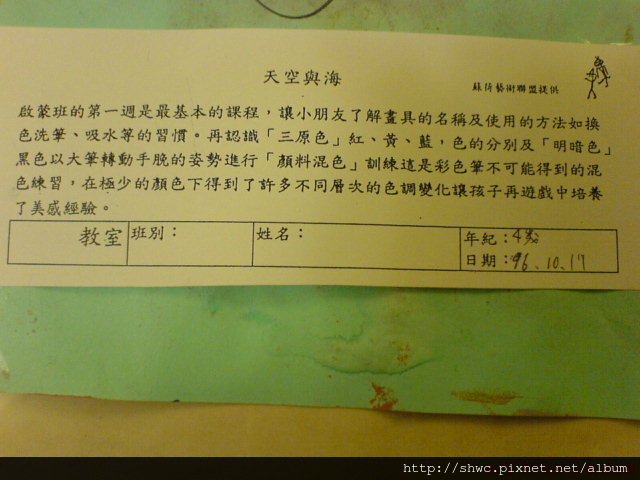 天空與海
蘇荷藝術聯盟提供
啟蒙班的第一週是最基本的課程，讓小朋友了解畫具的名稱及使用的方法如換
色洗筆、吸水等的習慣。再認識「三原色」紅、黃、藍，色的分別及「明暗色」
黑色以大筆轉動手脫的姿勢進行「顏料混色」訓練這是彩色筆不可能得到的混
色練習，在極少的顏色下得到了許多不同層次的色調變化讓孩子再遊戲中培養
了美感經驗。
教室 班別： 姓名： 年紀：4歲
日期：96.10.17
http://shwc.pixnet.net/album